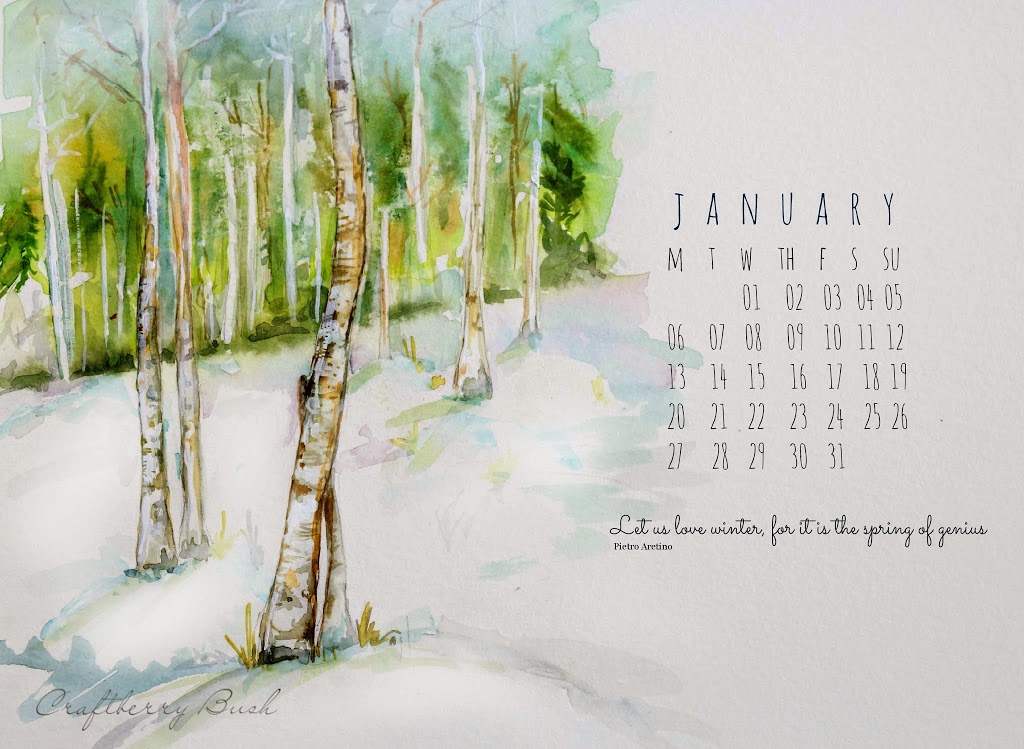 JANUARY
M T W TH F S SU
01 02 03 04 05
06 07 08 09 10 11 12
13 14 15 16 17 18 19
20 21 22 23 24 25 26
27 28 29 30 31
Let us love winter, for it is the spring of genius
Pietro Aretino
Craftberry Bush